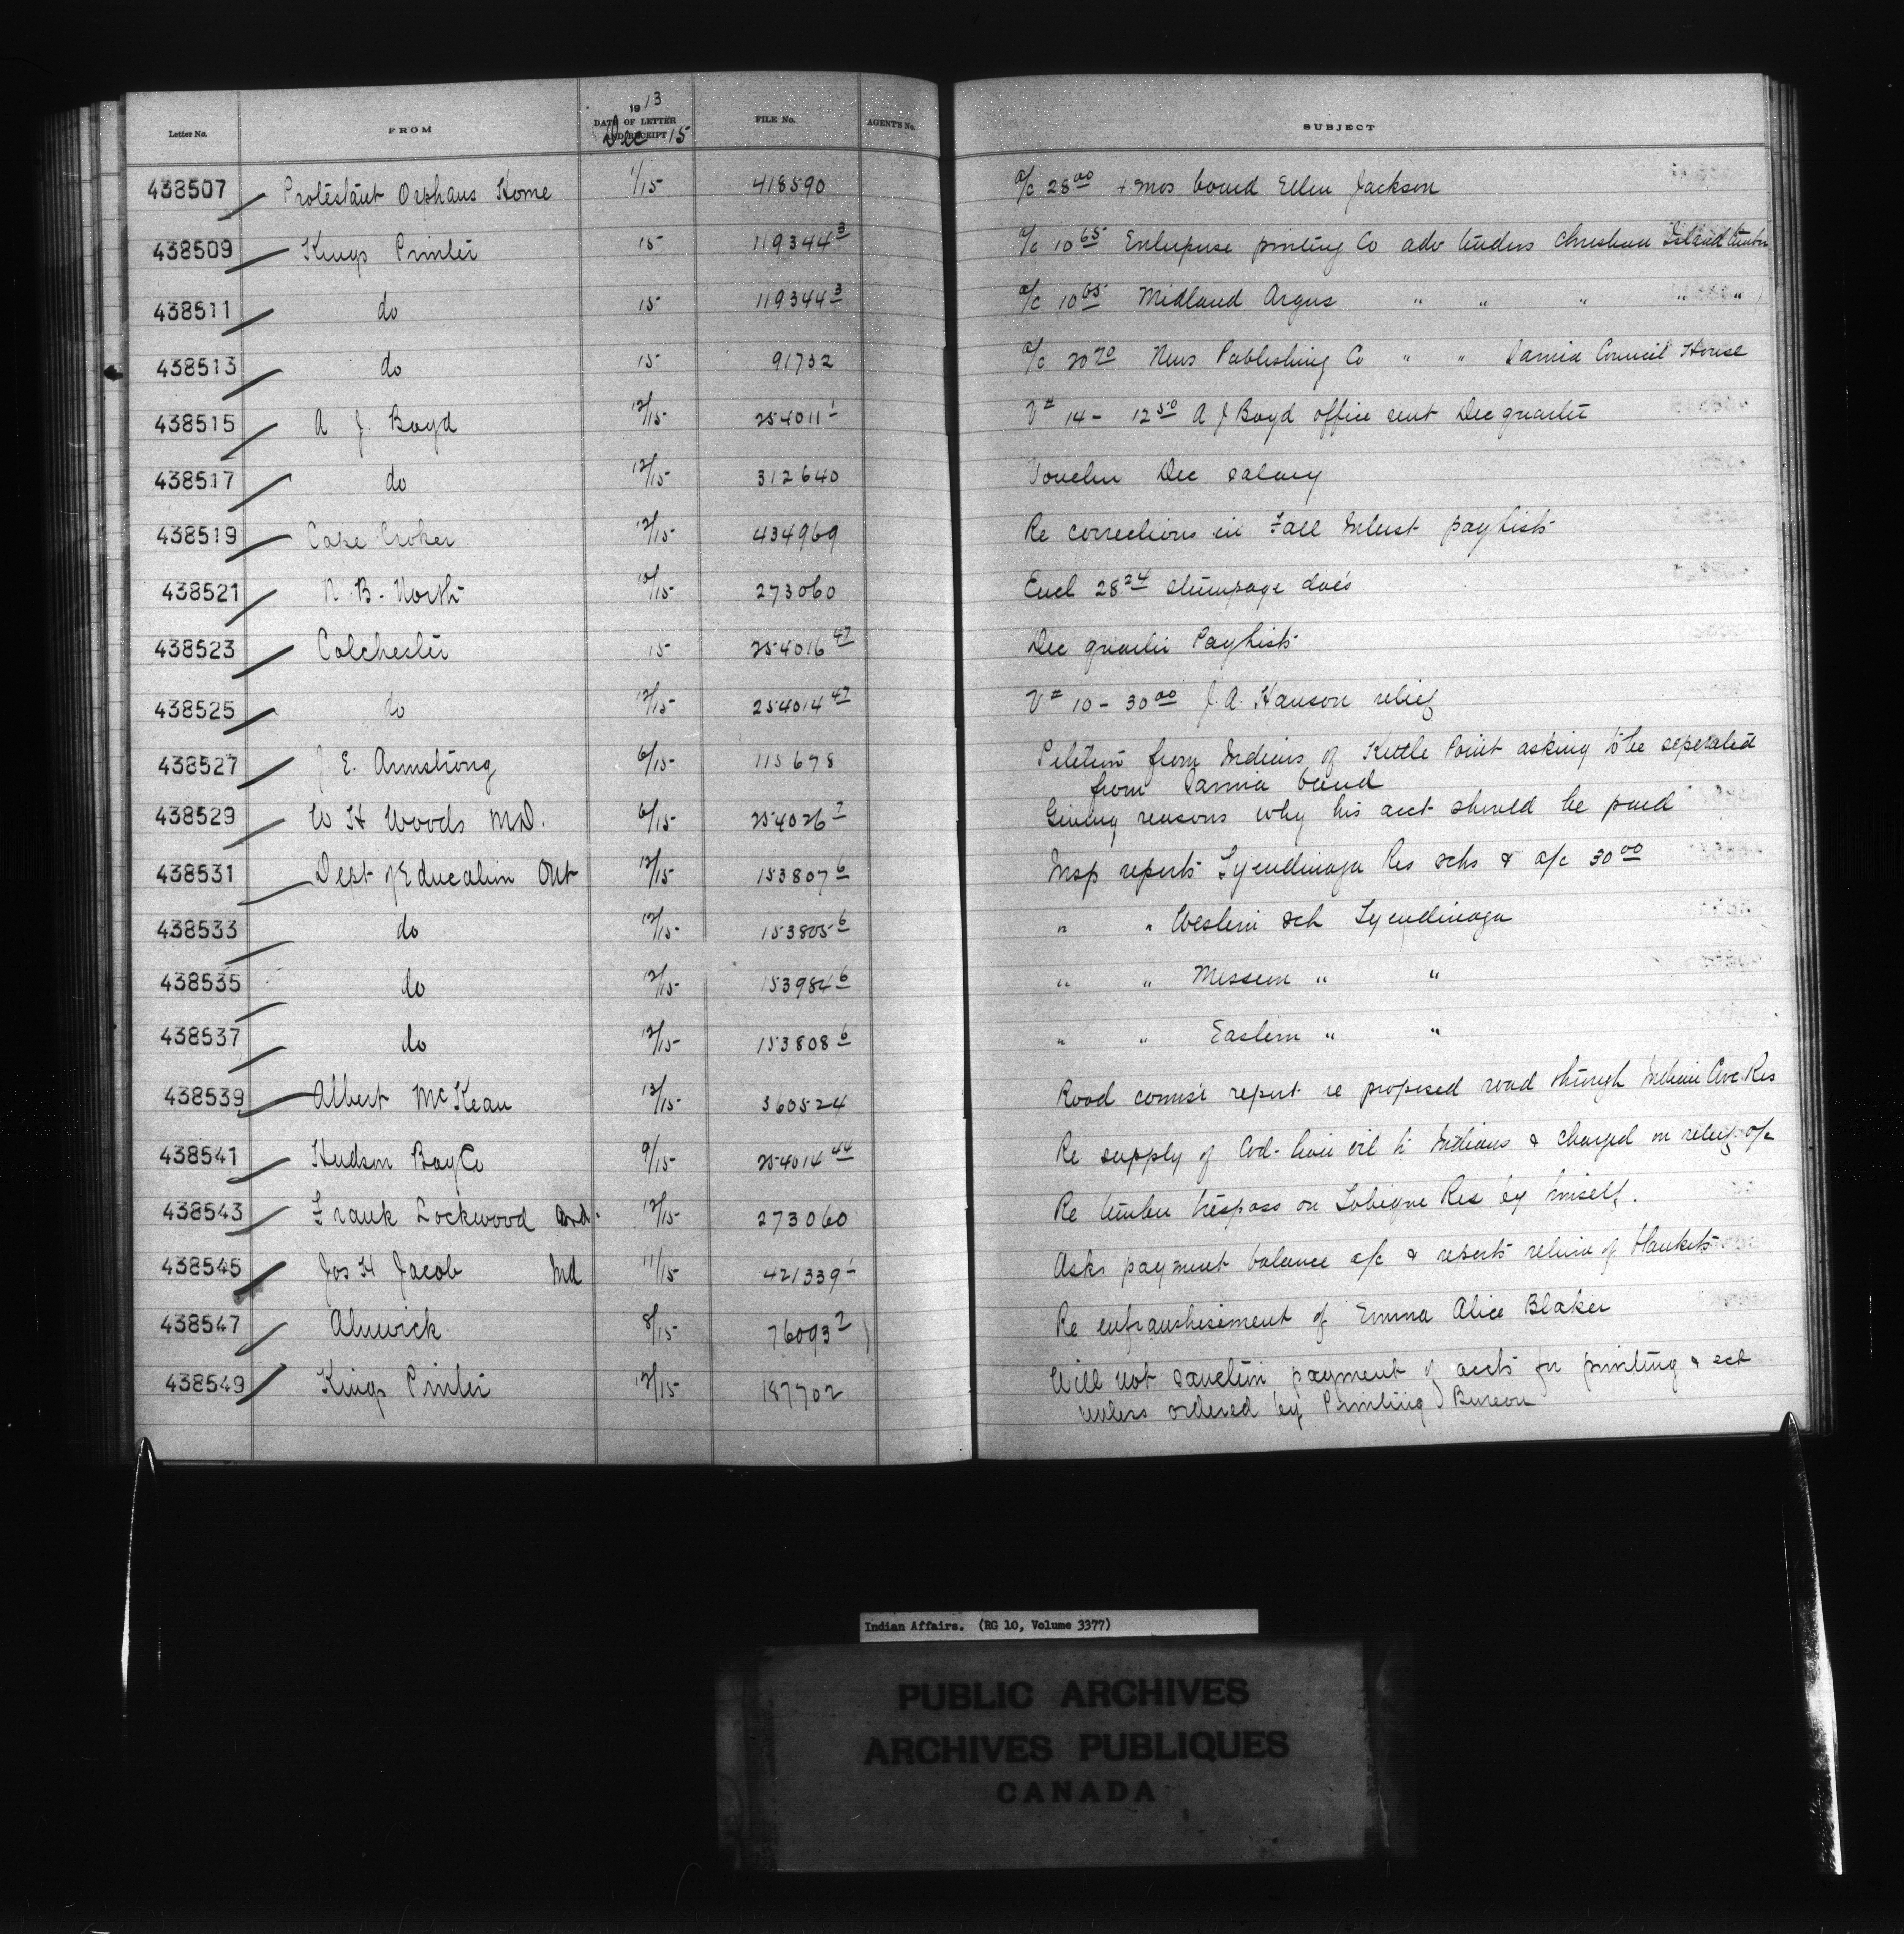 Letter No. FROM 1913 DATE OF LETTER AND RECEIPT Dec 15 FILE No. AGENT'S No. SUBJECT
438507 Protestant Orphans Home 1/15 418590 a/c 28 00 4 mos board Ellen Jackson
438509 Kings Printer 15 119344 3 a/c 10 65 Enterprise printing Co adv tenders Christian Island timber
438511 do 15 119344 3 a/c 10 65 Midland Argus " " " " "
438513 do 15 91732 a/c 20 70 News Publishing Co " " Sarnia Council House
438515 A. J. Boyd 12/15 254011 1 V # 14 - 12 50 A J Boyd office rent Dec quarter
438517 do 12/15 312640 Voucher Dec salary
438519 Cape Croker 12/15 434969 Re corrections in Fall Interest paylists
438521 N. B. North 10/15 273060 Encl 28 24 stumpage dues
438523 Colchester 15 254016 47 Dec quarter Paylists
438525 do 12/15 254014 47 V # 10 - 30 00 J. A. Hanson relief
438527 J E. Armstrong 6/15 115678 Petition from Indians of Kettle Point asking to be seperated
from Sarnia band
438529 W H Woods M.D. 6/15 254026 7 Giving reasons why his acct should be paid
438531 Dept of Education Ont 12/15 153807 6 Insp reports Tyendinaga Res schs & a/c 30 00
438533 do 12/15 153805 6 " " Western sch Tyendinaga
438535 do 12/15 153984 6 " " Mission " "
438537 do 12/15 153808 6 " " Eastern " "
438539 Albert McKean 12/15 360524 Road comsr report re proposed road through Indian Cove Res
438541 Hudson Bay Co 9/15 254014 44 Re supply of Cod-liver oil to Indians & charged on relief a/c
438543 Frank Lockwood 12/15 273060 Re timber trespass on Tobique Res by himself.
438545 Jos H Jacob Ind 11/15 421339 1 Asks payment balance a/c & reports return of blankets
438547 Alnwick 8/15 76093 2 Re enfranshisement of Emma Alice Blaker
438549 Kings Printer 12/15 187702 Will not sanction payment of accts for printing & ect
unless ordered by Printing Bureau
Indian Affairs. (RG 10, Volume 3377)
PUBLIC ARCHIVES
ARCHIVES PUBLIQUES
CANADA